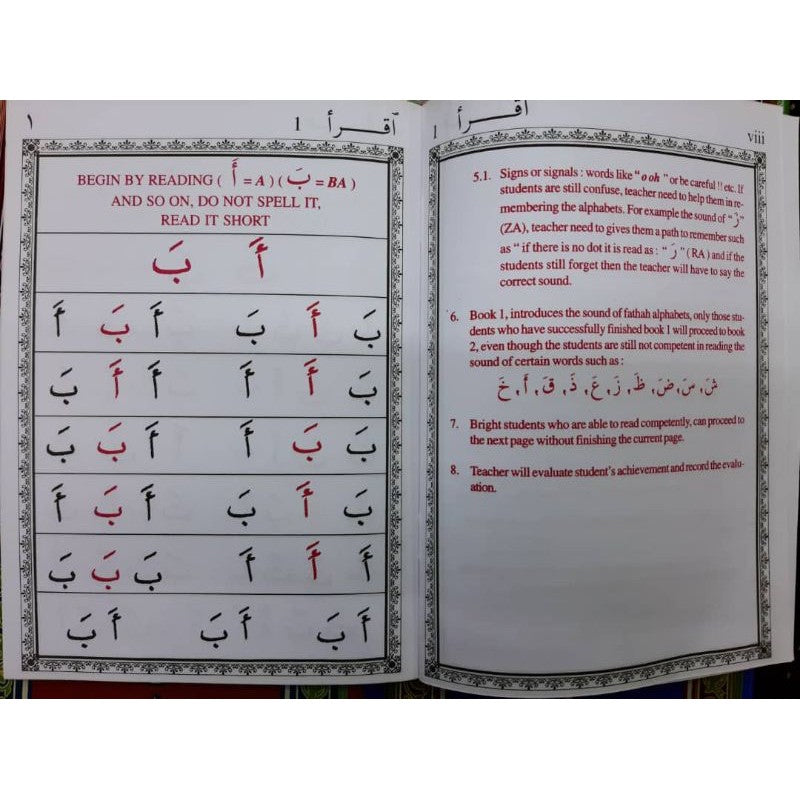 اقرأ 1
viii
5.1. Signs or signals : words like "o oh" or be careful !! etc. If
students are still confuse, teacher need to help them in re-
membering the alphabets. For example the sound of " زَ "
(ZA), teacher need to gives them a path to remember such
as " if there is no dot it is read as : " رَ " (RA) and if the
students still forget then the teacher will have to say the
correct sound.
6. Book 1, introduces the sound of fathah alphabets, only those stu-
dents who have successfully finished book 1 will proceed to book
2, even though the students are still not competent in reading the
sound of certain words such as :
شَ, سَ, ضَ, ظَ, زَ, عَ, ذَ, قَ, أَ, خَ
7. Bright students who are able to read competently, can proceed to
the next page without finishing the current page.
8. Teacher will evaluate student's achievement and record the evalu-
ation.
اقرأ 1
١
BEGIN BY READING ( أَ = A ) ( بَ = BA )
AND SO ON, DO NOT SPELL IT,
READ IT SHORT
أَ بَ
بَ أَ بَ أَ بَ أَ
بَ أَ أَ أَ أَ بَ
بَ بَ أَ أَ بَ بَ
بَ أَ بَ أَ بَ أَ
أَ أَ أَ بَ بَ بَ
أَ بَ أَ بَ أَ بَ